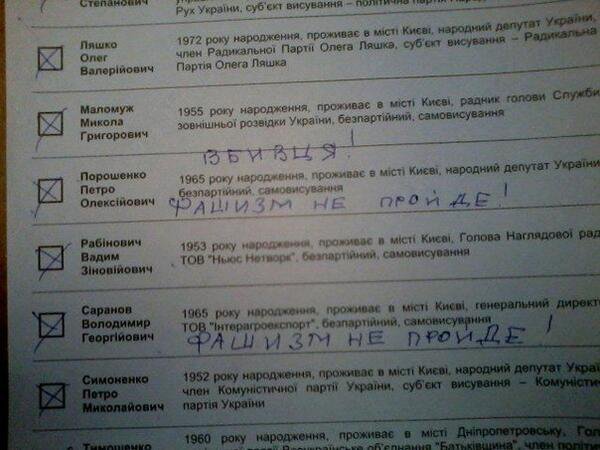 Степанович
Рух України, суб'єкт висування – політична партія
Ляшко
Олег
Валерійович
1972 року народження, проживає в місті Києві, народний депутат України,
член Радикальної Партії Олега Ляшка, суб'єкт висування – Радикальна
Партія Олега Ляшка
Маломуж
Микола
Григорович
1955 року народження, проживає в місті Києві, радник голови Служби
зовнішньої розвідки України, безпартійний, самовисування
ВБИВЦЯ!
Порошенко
Петро
Олексійович
1965 року народження, проживає в місті Києві, народний депутат України
безпартійний, самовисування
ФАШИЗМ НЕ ПРОЙДЕ!
Рабінович
Вадим
Зіновійович
1953 року народження, проживає в місті Києві, Голова Наглядової рад
ТОВ "Ньюс Нетворк", безпартійний, самовисування
Саранов
Володимир
Георгійович
1965 року народження, проживає в місті Києві, генеральний директо
ТОВ "Інтерагроекспорт", безпартійний, самовисування
ФАШИЗМ НЕ ПРОЙДЕ!
Симоненко
Петро
Миколайович
1952 року народження, проживає в місті Києві, народний депутат Украї
член Комуністичної партії України, суб'єкт висування – Комуніст
партія України
Тимошенко
1960 року народження, проживає в місті Дніпропетровську, Гол
Всеукраїнське об'єднання "Батьківщина", член політи